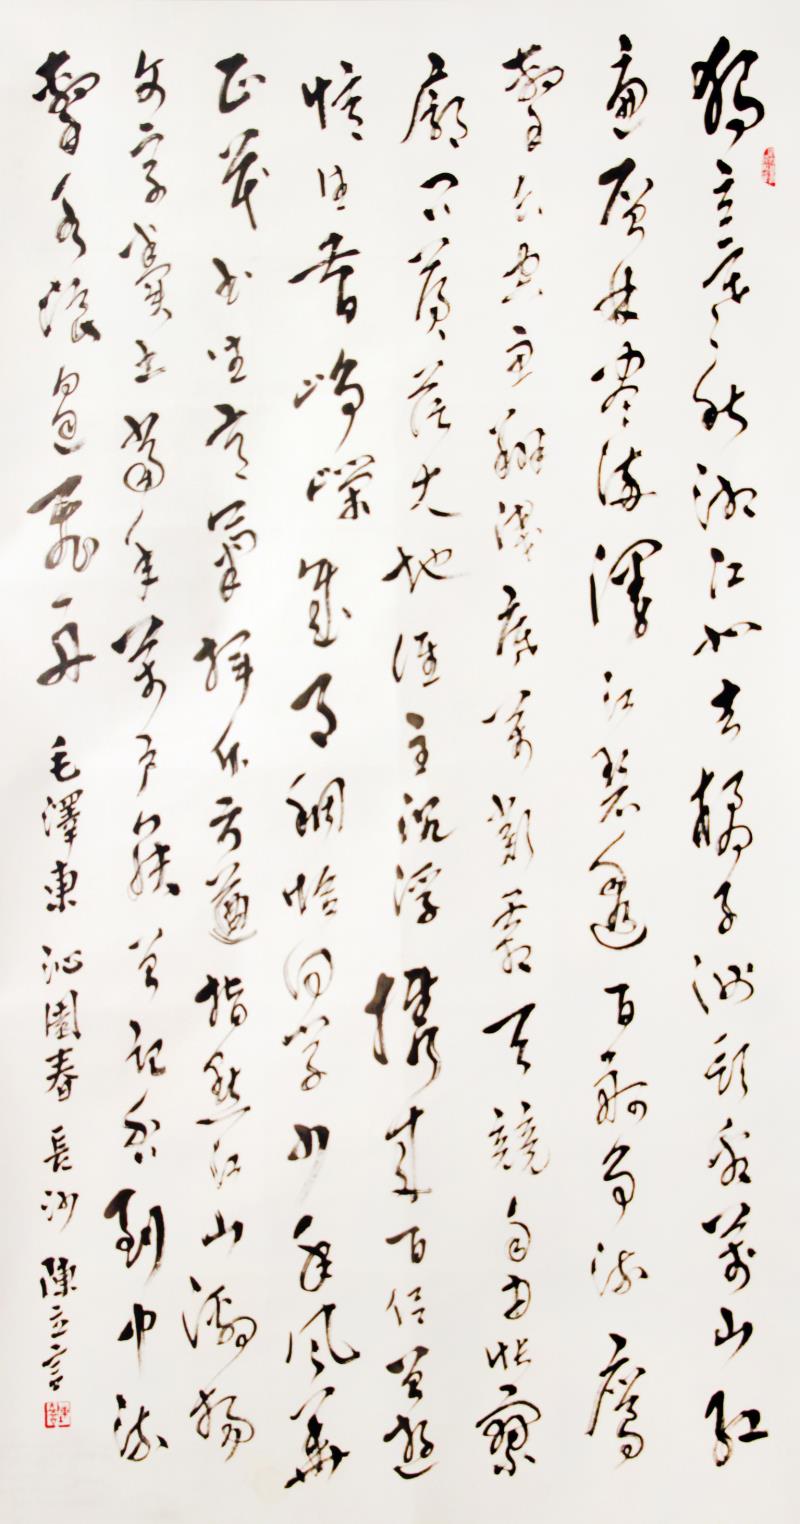 獨立寒秋湘江北去橘子洲頭看萬山紅
遍層林盡染漫江碧透百舸爭流鷹
擊長空魚翔淺底萬類霜天競自由悵寥
廓問蒼茫大地誰主沉浮攜來百侶曾遊
憶往昔崢嶸歲月稠恰同學少年風華
正茂書生意氣揮斥方遒指點江山激揚
文字糞土當年萬戶侯曾記否到中流
擊水浪遏飛舟 毛澤東 沁園春 長沙 陳立言